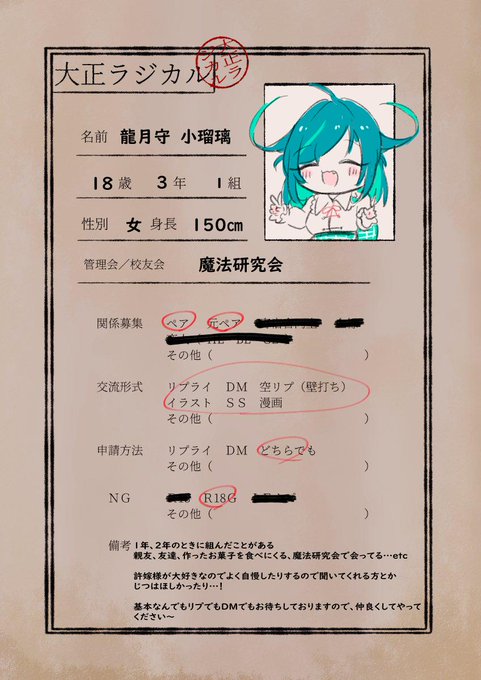 大正ラジカル
大正ラジカル
名前 龍月守 小瑠璃
18歳 3年 1組
性別 女 身長 150cm
管理会/校友会 魔法研究会
関係募集 ペア 元ペア
その他( )
交流形式 リプライ DM 空リプ(壁打ち)
イラスト SS 漫画
その他( )
申請方法 リプライ DM どちらでも
その他( )
NG R18G
その他( )
備考 1年、2年のときに組んだことがある
親友、友達、作ったお菓子を食べにくる、魔法研究会で会ってる…etc
許嫁様が大好きなのでよく自慢したりするので聞いてくれる方とか
じつはほしかったり…!
基本なんでもリプでもDMでもお待ちしておりますので、仲良くしてやって
ください〜